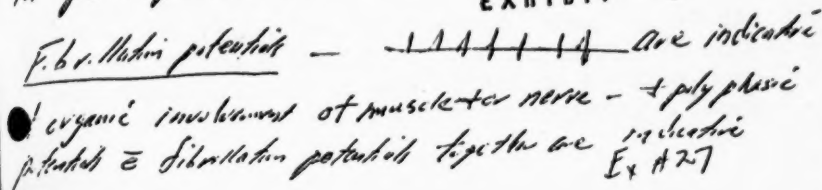 EXHIBIT
Fibrillation potentials — are indicative
of organic involvement of muscle + or nerve - + polyphasic
potentials c̄ fibrillation potentials together are indicative
Ex A27